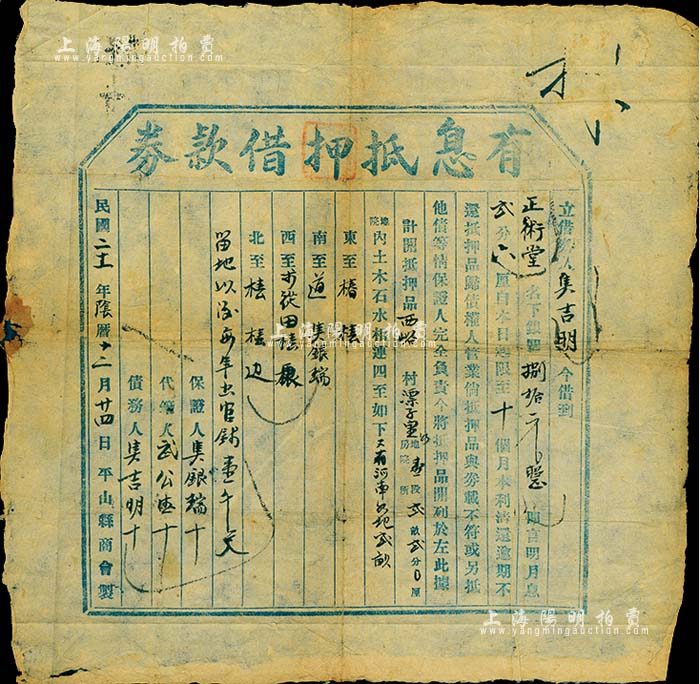 有息抵押借款券
立借券人集吉明今借到
正術堂名下銀洋捌拾元整 言明月息
弍分六厘自本日起限至十個月本利清還逾期不
還抵押品歸債權人管業倘抵押品與券載不符或另抵
他債等情保證人完全負責今將抵押品開列於左此據
計開抵押品西 村潔子里 地壹段弍畝弍分0厘
房院 所
地院內土木石水相連四至如下 又有河南 地弍畝
東至 椿
南至道 集銀瑞
西至 田
北至 边
當地以後每年出官錢壹千文
保證人集銀瑞十
代筆人武公 十
債務人集吉明十
民國二十二年陰曆十二月廿四日 平山縣商會製
上海陽明拍賣
www.yangmingauction.com
上海陽明拍賣
www.yangmingauction.com